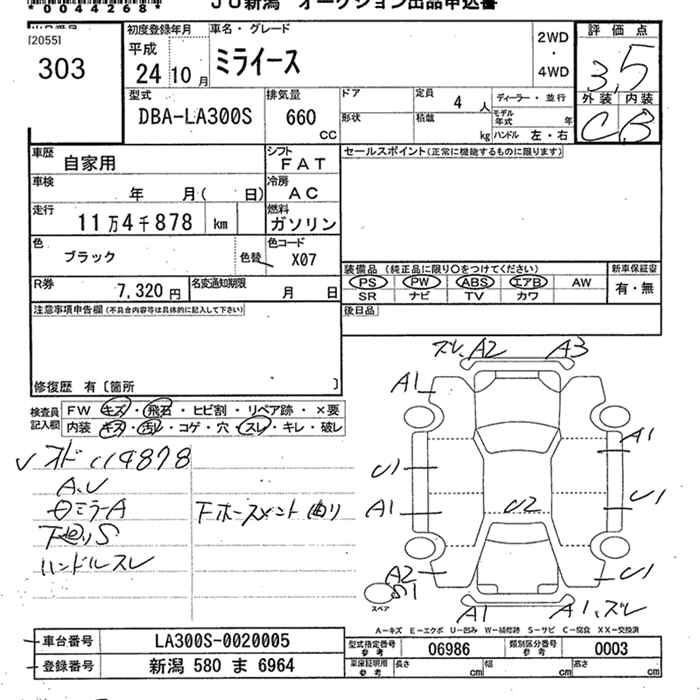 *0044268*
JU新潟 オークション出品申込書
[2055]
303
初度登録年月
平成
24年10月
車名・グレード
ミライース
2WD
・
4WD
評価点
3.5
外装 内装
C B
型式
DBA-LA300S
排気量
660
CC
ドア
形状
定員
4 人
積載
kg
ディーラー・並行
モデル年式 年
ハンドル 左・右
車歴
自家用
シフト
FAT
セールスポイント(正常に機能するものに限ります)
車検
年 月( 日)
冷房
AC
走行
11万4千878 km
燃料
ガソリン
色
ブラック
色替
色コード
X07
装備品(純正品に限り○をつけてください)
PS PW ABS エアB AW
SR ナビ TV カワ
新車保証書
有・無
R券
7,320円
名変通知期限
月 日
後日品
注意事項申告欄(不具合内容等は具体的に記入して下さい)
修復歴 有〔箇所 〕
検査員記入欄
FW キズ・飛石・ヒビ割・リペア跡・×要
内装 キズ・汚レ・コゲ・穴・スレ・キレ・破レ
オド 114878
A.U
ミラーA
下廻りS
ハンドルスレ
下ホースメント曲り
ズレ、A2 A3
A1
A1
U1
A1
U2
U1
A2
S1
スペア
U1
A1
A1、ズレ
A-キズ E-エクボ U-凹み W-補修跡 S-サビ C-腐食 XX-交換済
車台番号 LA300S-0020005
登録番号 新潟 580 ま 6964
型式指定番号 参考 06986
類別区分番号 参考 0003
車庫証明用 参考 長さ cm 幅 cm 高さ cm